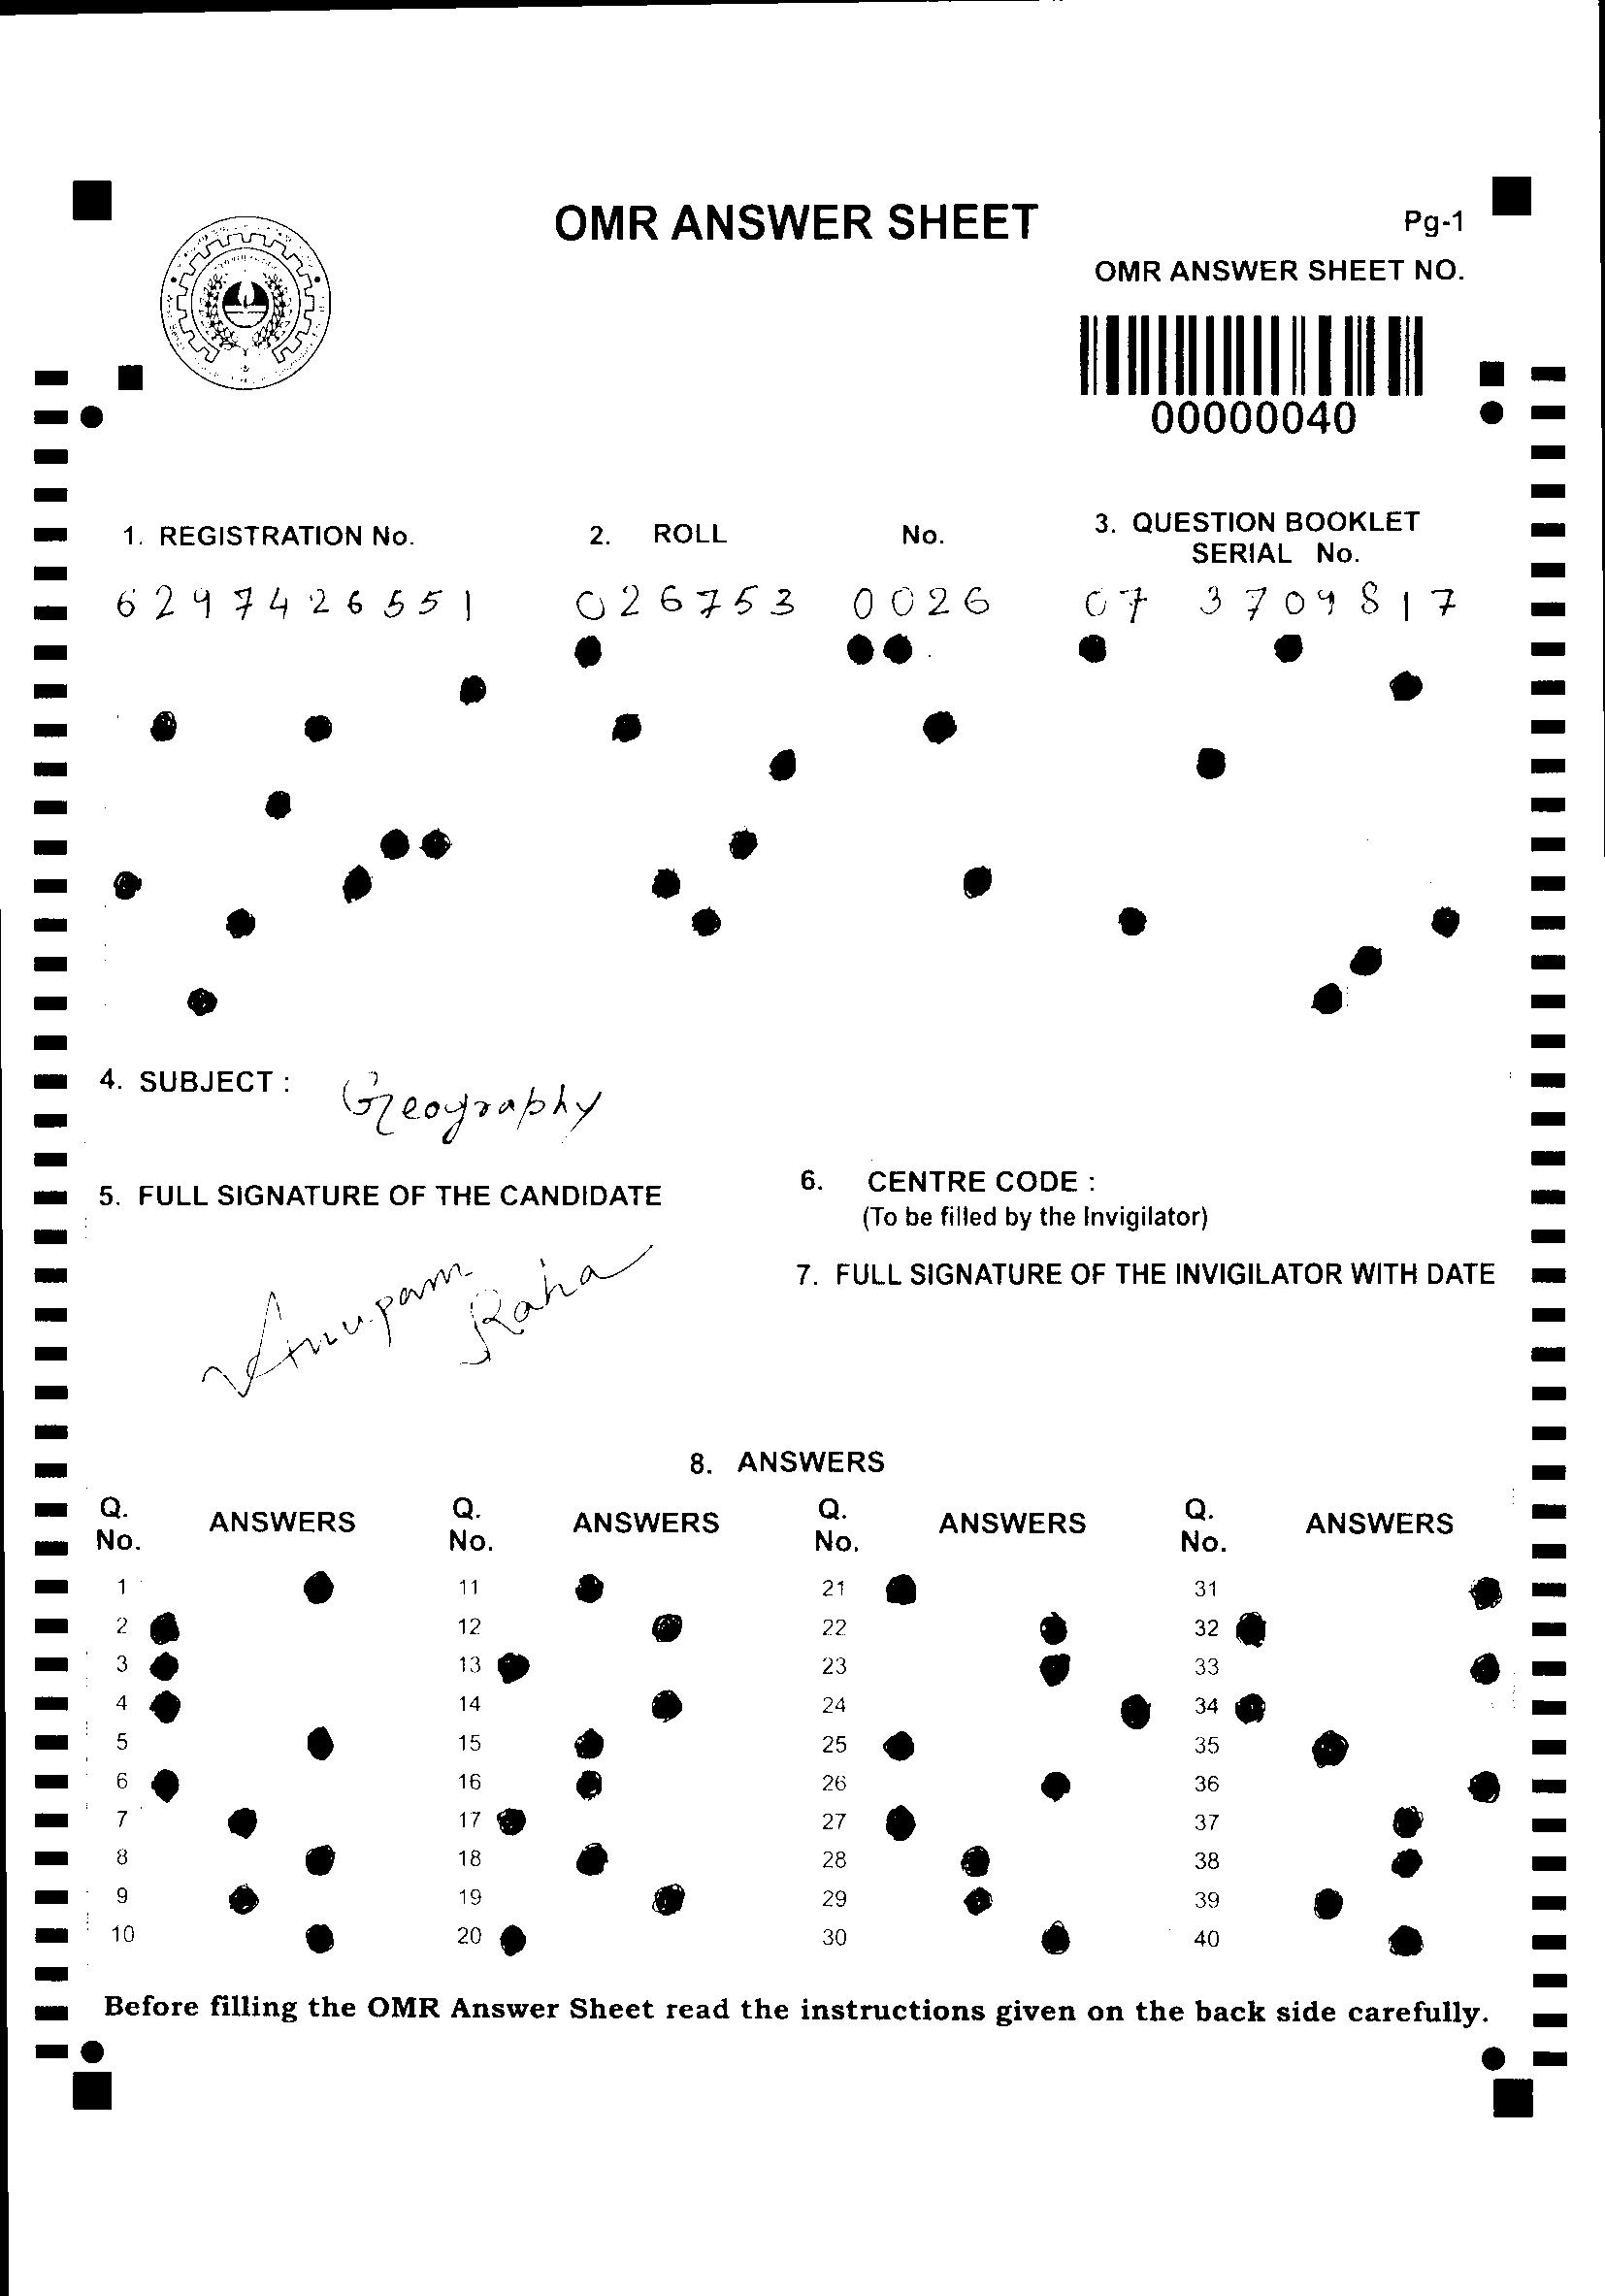 OMR ANSWER SHEET
Pg-1
OMR ANSWER SHEET NO.
00000040
1. REGISTRATION No.
2. ROLL No.
3. QUESTION BOOKLET
SERIAL No.
6297426551
026753 0026
07 3709817
4. SUBJECT : Geography
5. FULL SIGNATURE OF THE CANDIDATE
Anupam Raha
6. CENTRE CODE :
(To be filled by the Invigilator)
7. FULL SIGNATURE OF THE INVIGILATOR WITH DATE
8. ANSWERS
Q. No. ANSWERS Q. No. ANSWERS Q. No. ANSWERS Q. No. ANSWERS
1 11 21 31
2 12 22 32
3 13 23 33
4 14 24 34
5 15 25 35
6 16 26 36
7 17 27 37
8 18 28 38
9 19 29 39
10 20 30 40
Before filling the OMR Answer Sheet read the instructions given on the back side carefully.